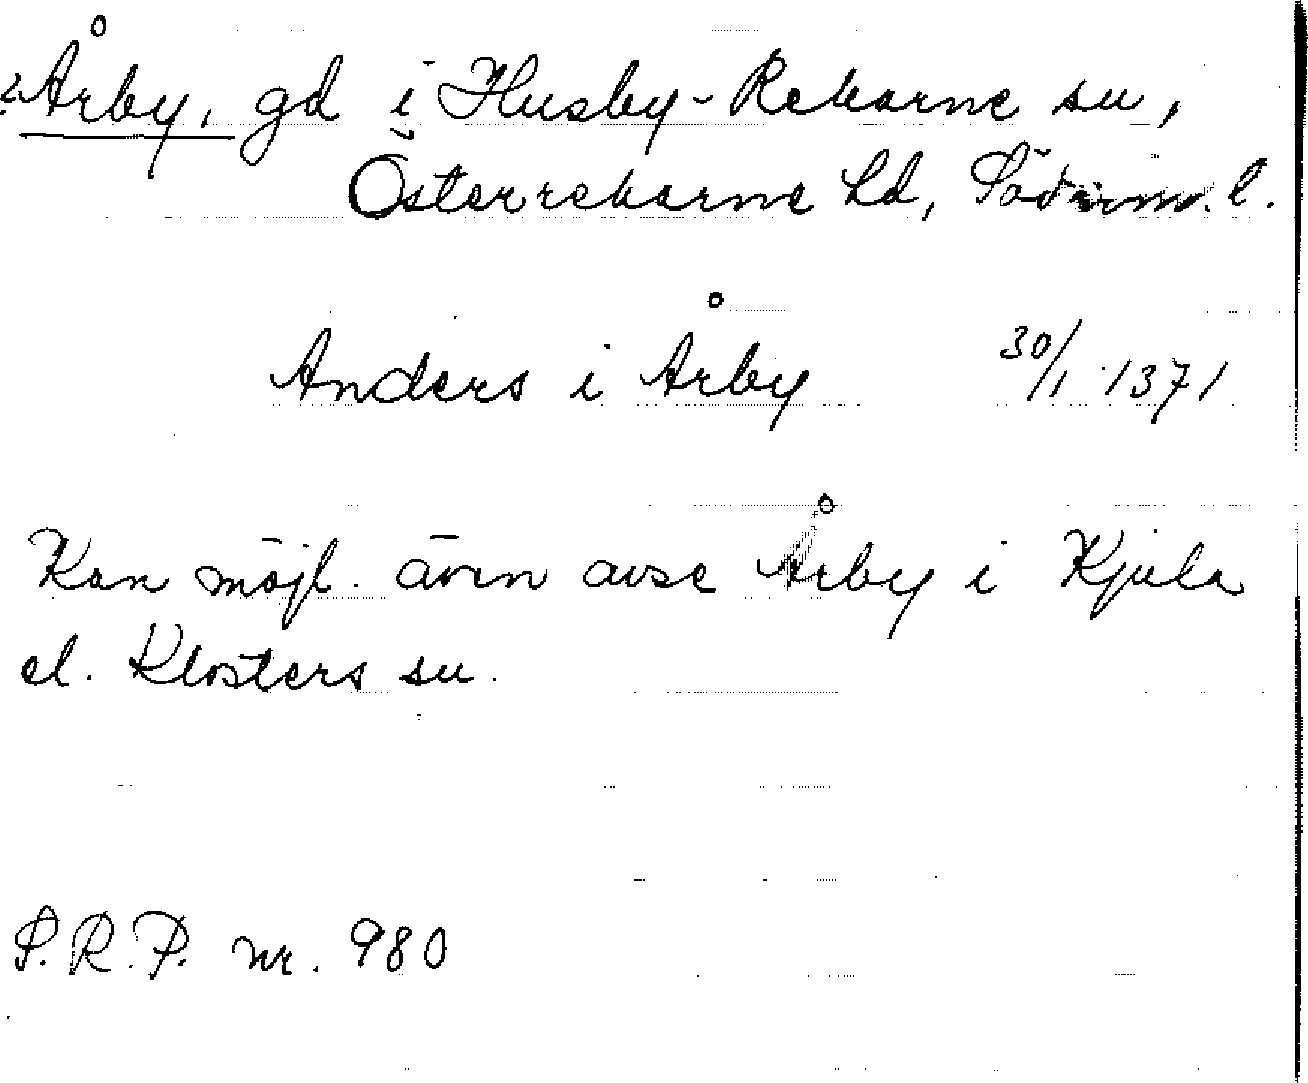 ? Årby, gd i Husby-Rekarne sn,
Österrekarne hd, Söderm. l.
Anders i Årby 30/1 1371
Kan möjl. även avse Årby i Kjula
el. Klosters sn.
S.R.P. nr. 980